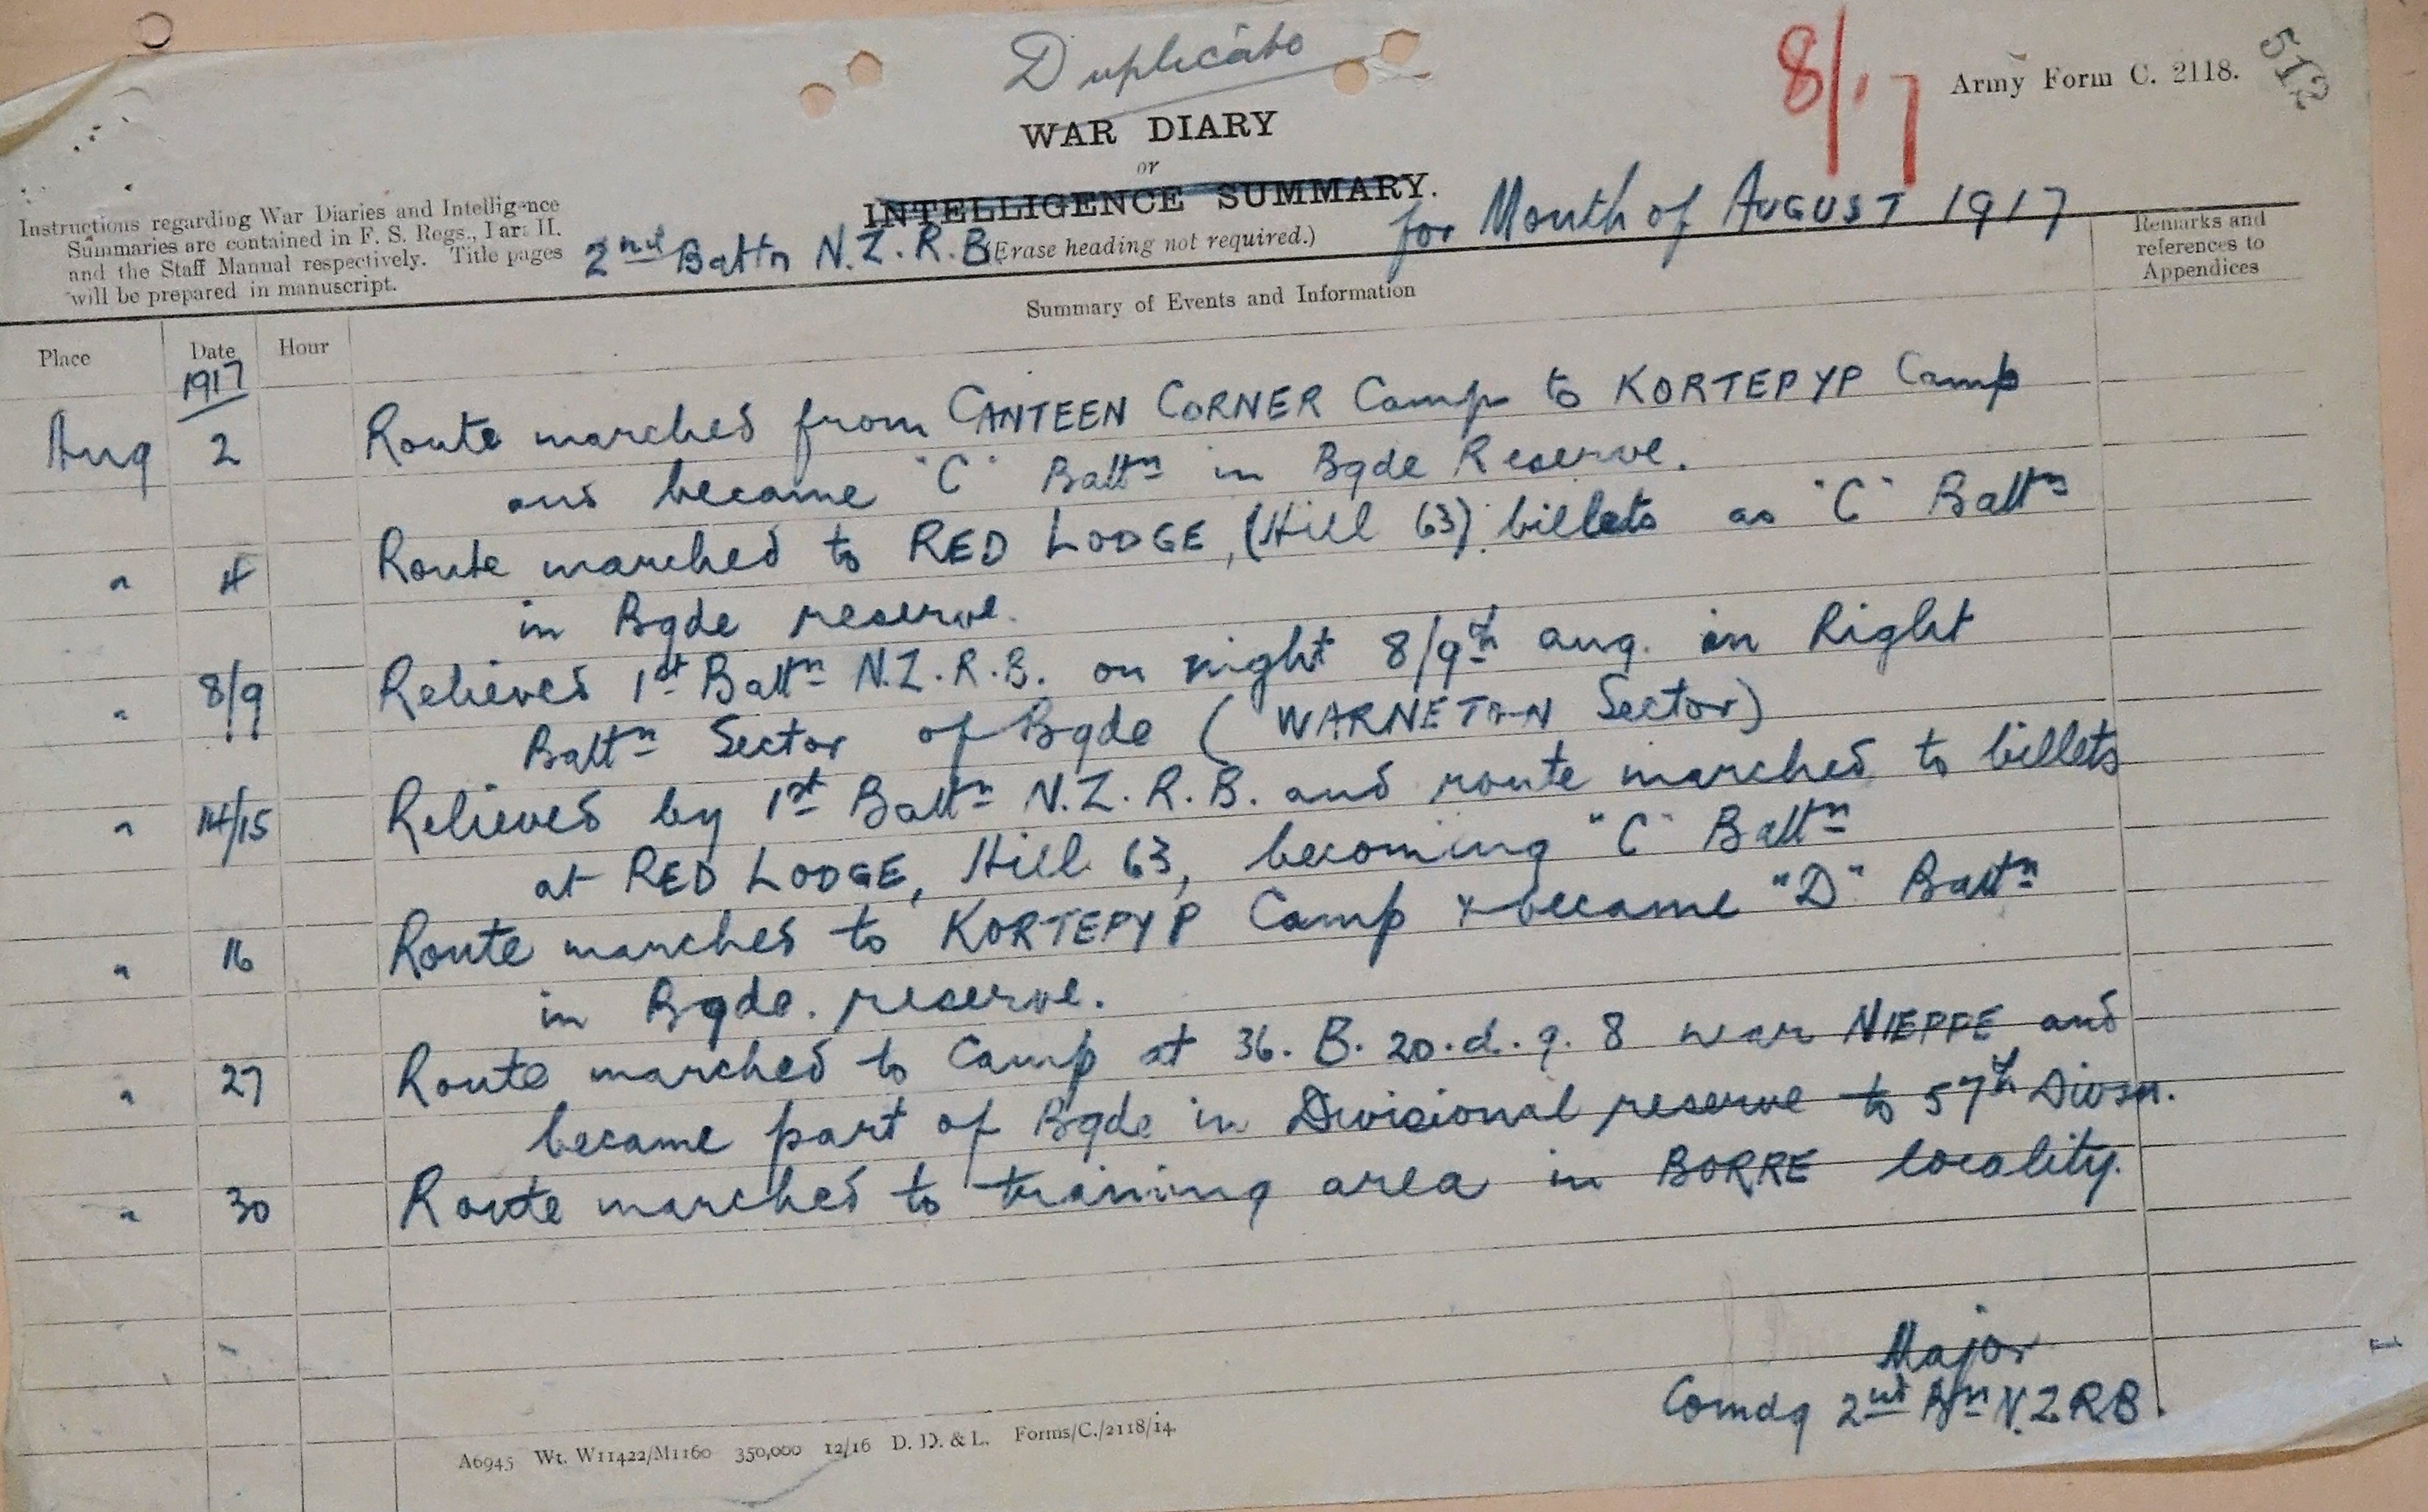 Duplicate
8/17
Army Form C. 2118.
512
WAR DIARY
or
INTELLIGENCE SUMMARY.
Instructions regarding War Diaries and Intelligence
Summaries are contained in F. S. Regs., Part II.
and the Staff Manual respectively. Title pages
will be prepared in manuscript.
2nd Battn N.Z.R.B. (Erase heading not required.) for Month of AUGUST 1917
Summary of Events and Information
Remarks and
references to
Appendices
Place Date Hour
1917
Aug 2 Route marched from CANTEEN CORNER Camp to KORTEPYP Camp
and became "C" Battn in Bgde Reserve.
" 4 Route marched to RED LODGE, (Hill 63) billets as "C" Battn
in Bgde reserve.
" 8/9 Relieved 1st Battn N.Z.R.B. on night 8/9th Aug. in Right
Battn Sector of Bgde (WARNETON Sector)
" 14/15 Relieved by 1st Battn N.Z.R.B. and route marched to billets
at RED LODGE, Hill 63, becoming "C" Battn
" 16 Route marched to KORTEPYP Camp & became "D" Battn
in Bgde. reserve.
" 27 Route marched to Camp at 36. B. 20. d. 9. 8 near NIEPPE and
became part of Bgde in Divisional reserve to 57th Divsn.
" 30 Route marched to training area in BORRE locality.
Major
Comdg 2nd Bn N.Z.R.B.
A6945 Wt. W11422/M1160 350,000 12/16 D. D. & L. Forms/C./2118/14.